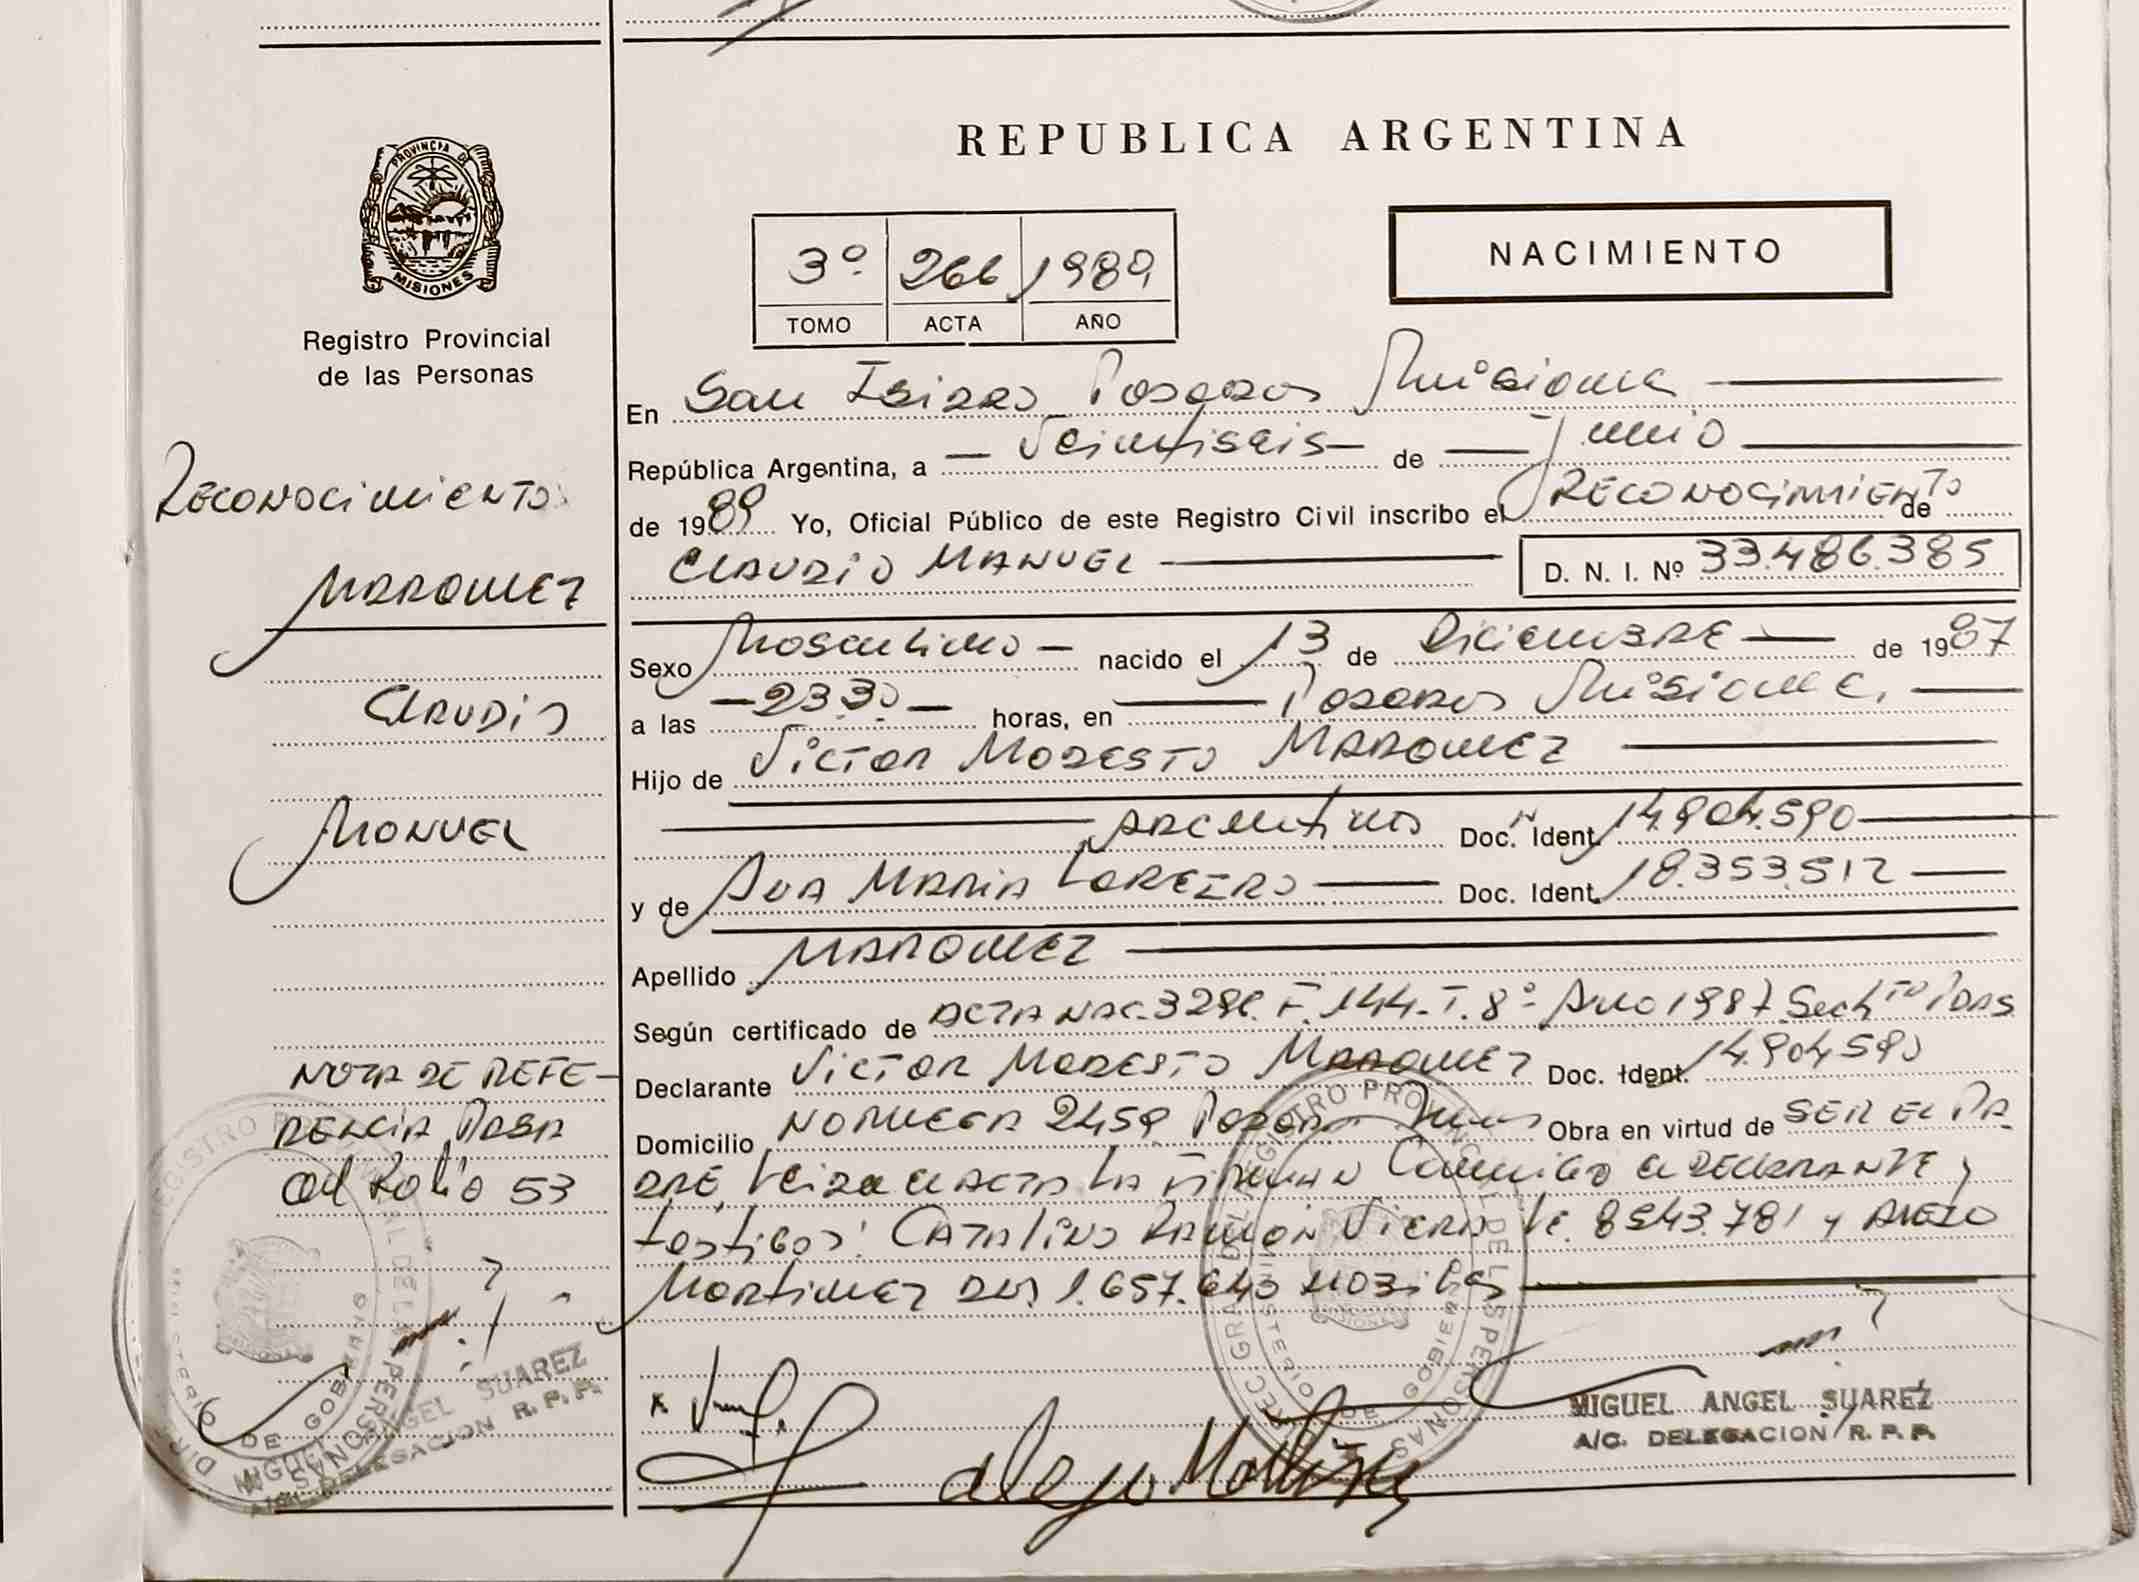 REPUBLICA ARGENTINA
PROVINCIA DE
MISIONES
Registro Provincial
de las Personas
3º 266 1989
TOMO ACTA AÑO
NACIMIENTO
En San Isidro Posadas Misiones
República Argentina, a Veintiseis de Junio
de 1989 Yo, Oficial Público de este Registro Civil inscribo el RECONOCIMIENTO de
CLAUDIO MANUEL D. N. I. Nº 33.486.385
Sexo Masculino nacido el 13 de Diciembre de 1987
a las 23 30 horas, en Posadas Misiones
Hijo de Victor Modesto Marquez
Argentino Doc. Ident. 14.904.590
y de Ana Maria Doc. Ident. 18.353.512
Apellido MARQUEZ
Según certificado de ACTA NAC. F. 144. T. 8º Año 1987 Sec
Declarante Victor Modesto Marquez Doc. Ident. 14.904.590
Domicilio NORUEGA 2459 Obra en virtud de SER EL PA
DRE, Leida el acta la firman Conmigo el DECLARANTE y
testigos: Catalino Ramon Viera 8543.781 y
Martinez 1.657.643
RECONOCIMIENTO
MARQUEZ
CLAUDIO
MANUEL
NOTA DE REFE-
RENCIA PASA
al folio 53
REGISTRO PROVINCIAL DE LAS PERSONAS
DE GOBIERNO
MIGUEL ANGEL SUAREZ
A/C. DELEGACION R. P. P.
REGISTRO PROVINCIAL DE LAS PERSONAS
MINISTERIO DE GOBIERNO
MISIONES
MIGUEL ANGEL SUAREZ
A/C. DELEGACION R. P. P.